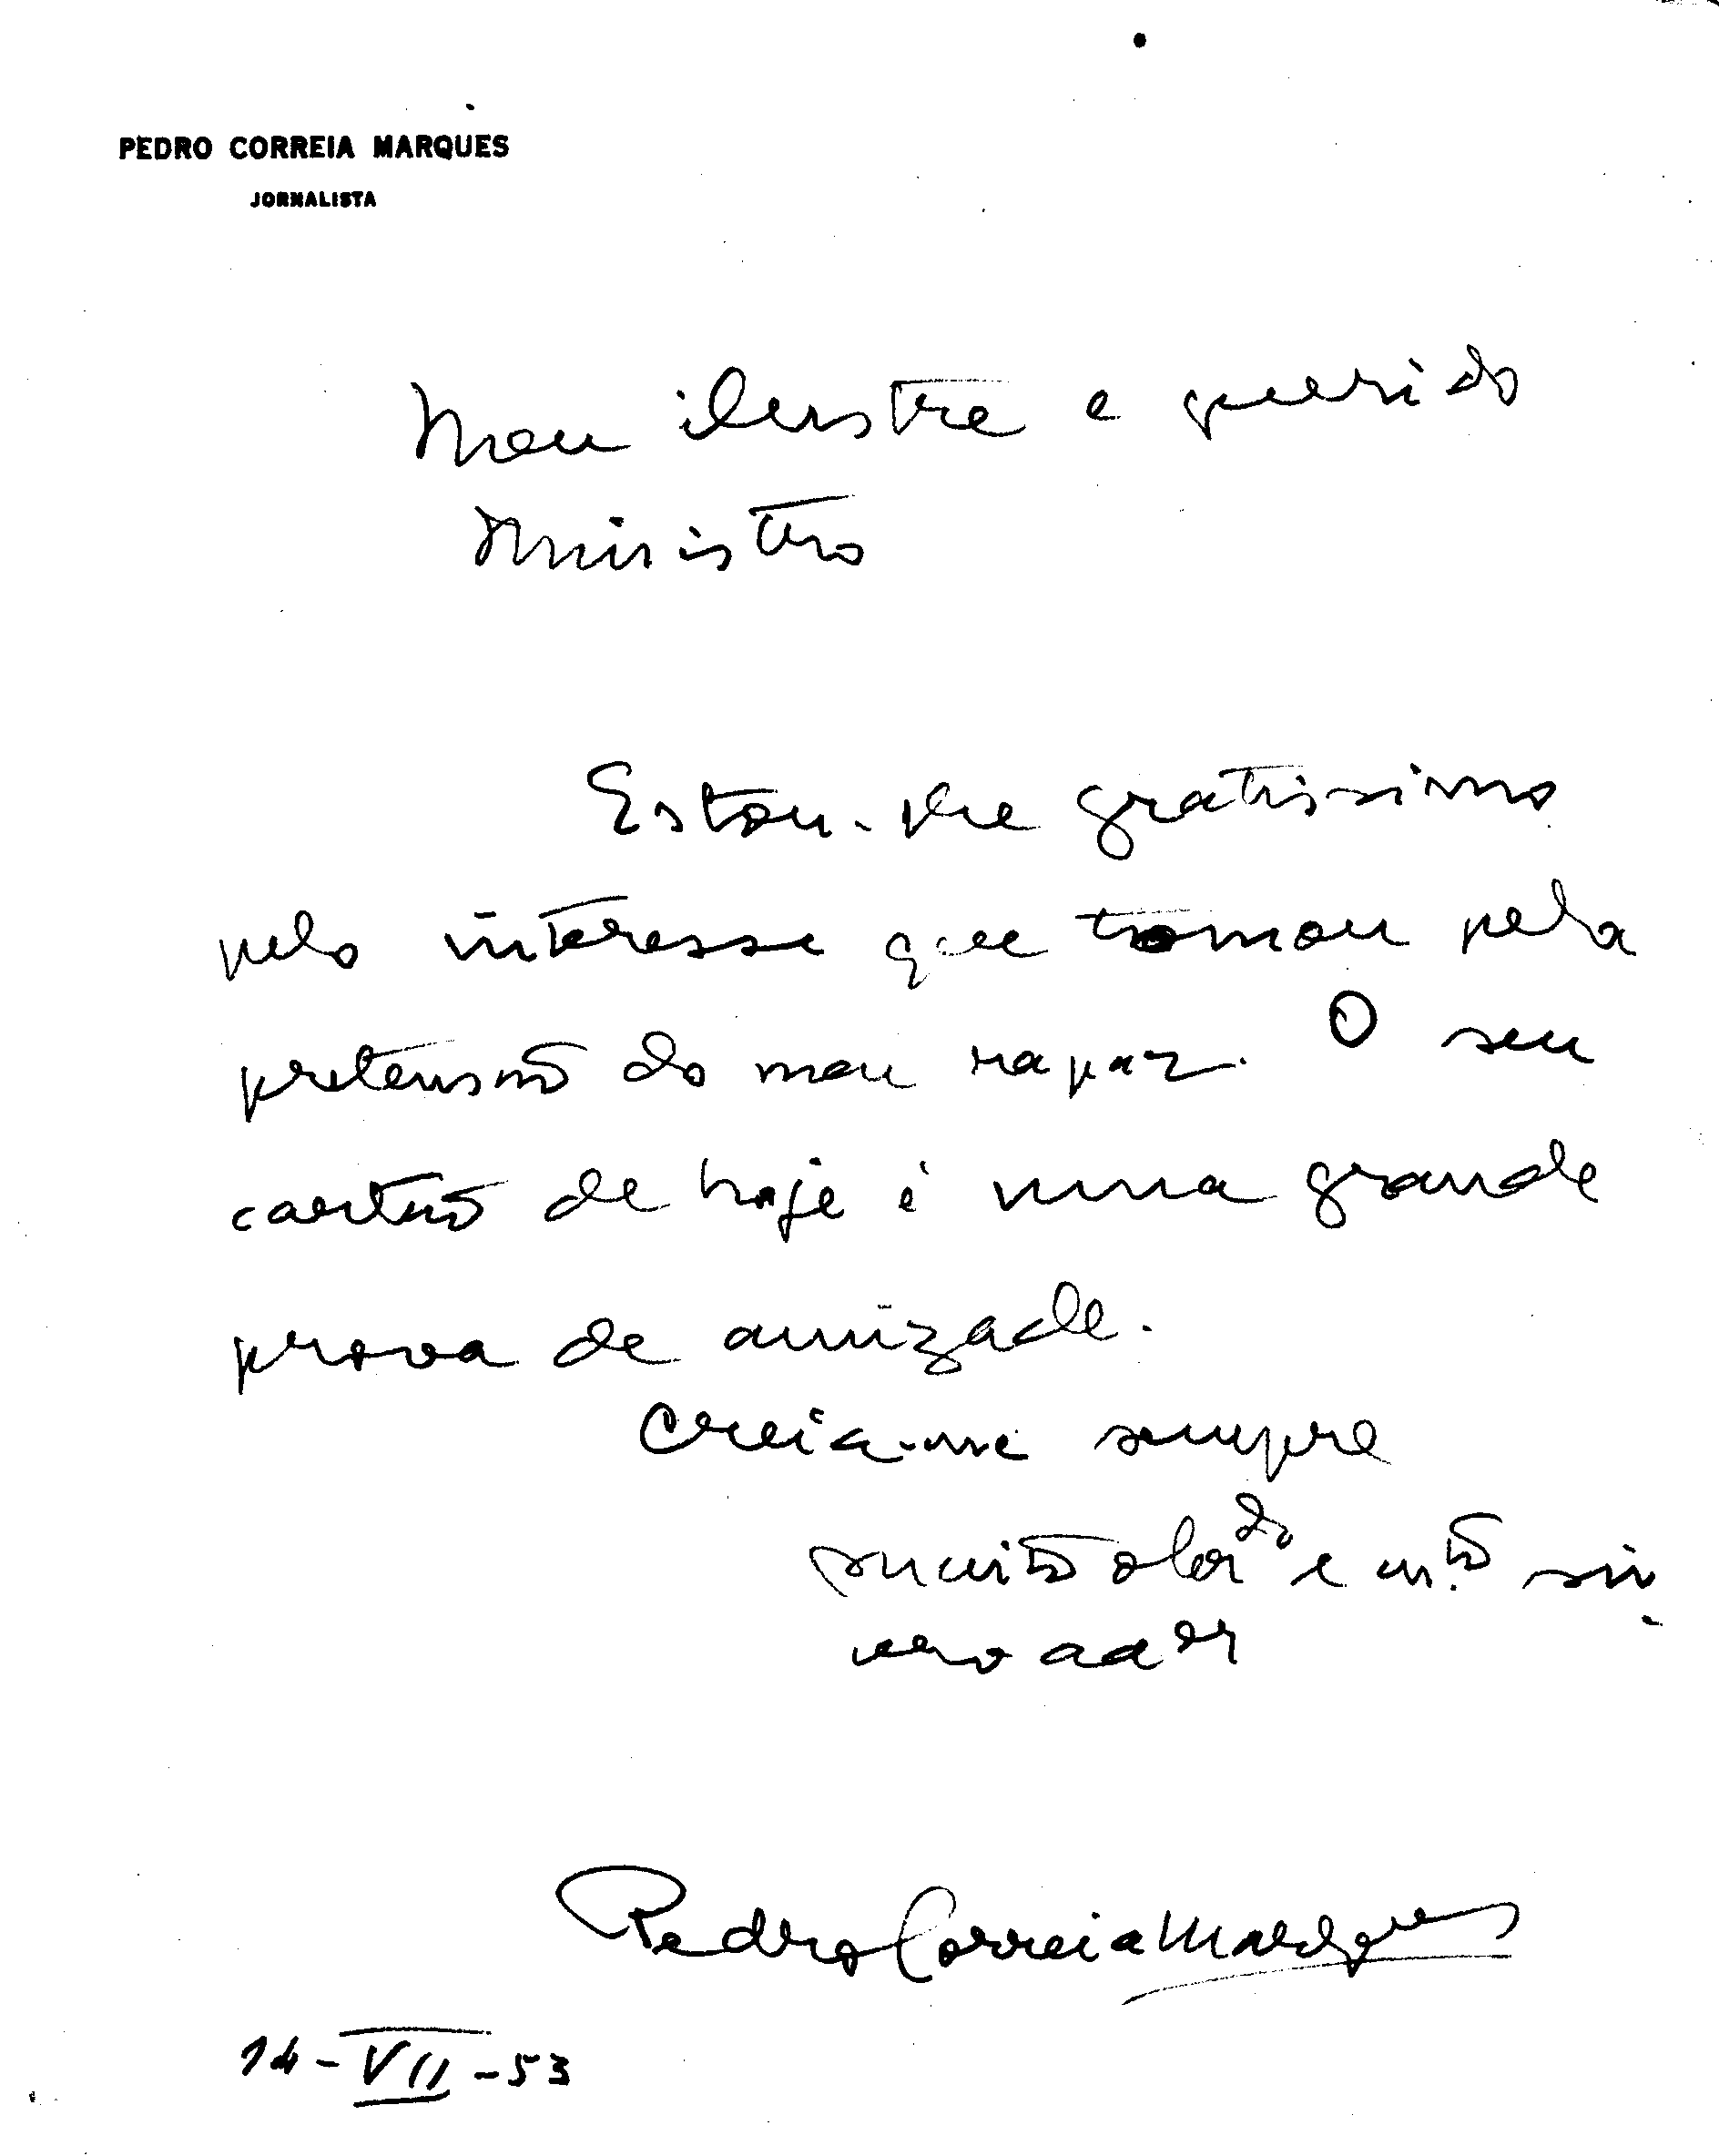 PEDRO CORREIA MARQUES
JORNALISTA
Meu ilustre e querido
Ministro
Estou-lhe gratissimo
pelo interesse que tomou pela
pretensão do meu rapaz. O seu
cartão de hoje é uma grande
prova de amizade.
Creia-me sempre
muito obrdo e m.to sin
cero ador
Pedro Correia Marques
14-VII-53